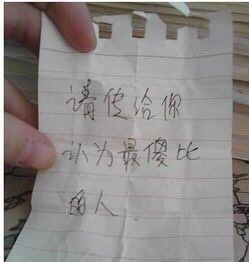 请传给你
认为最傻比
的人